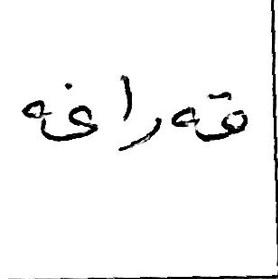 قەراغە